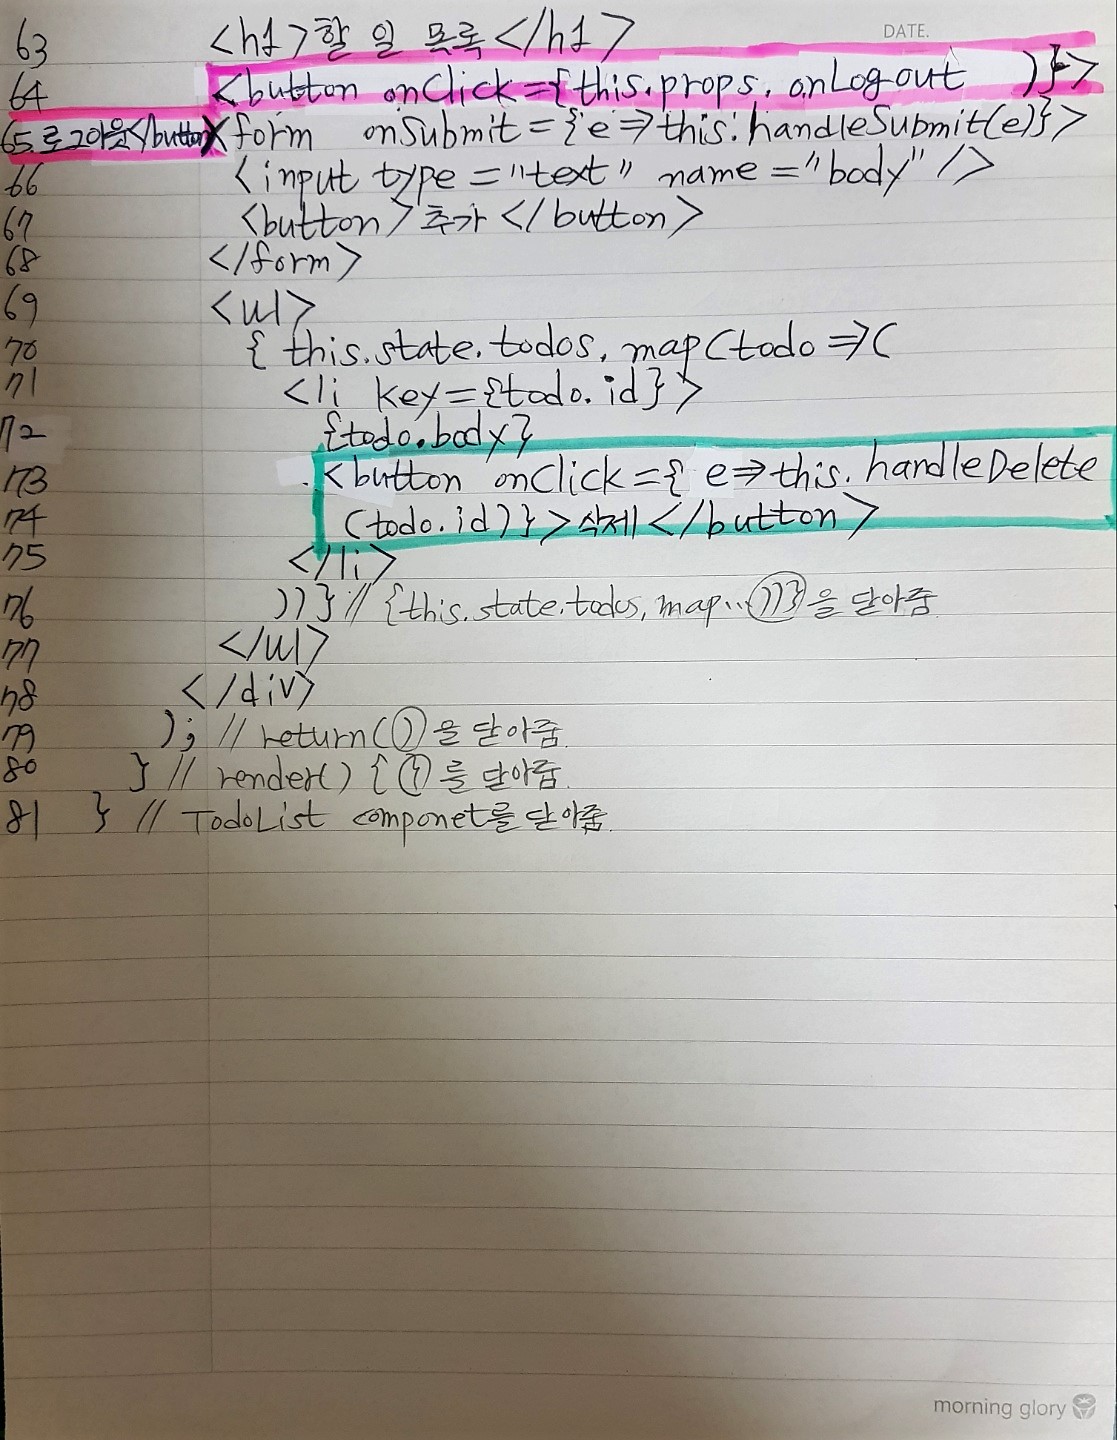 DATE.
63 <h1>할 일 목록</h1>
64 <button onClick={this.props.onLogout )}>
65 로그아웃</button><form onSubmit={e=>this.handleSubmit(e)}>
66 <input type="text" name="body"/>
67 <button>추가</button>
68 </form>
69 <ul>
70 {this.state.todos.map(todo=>(
71 <li key={todo.id}>
72 {todo.body}
73 <button onClick={e=>this.handleDelete
74 (todo.id)}>삭제</button>
75 </li>
76 ))}// {this.state.todos.map..))}을 닫아줌
77 </ul>
78 </div>
79 ); // return()을 닫아줌.
80 } // render() {}를 닫아줌.
81 } // TodoList componet를 닫아줌.
morning glory